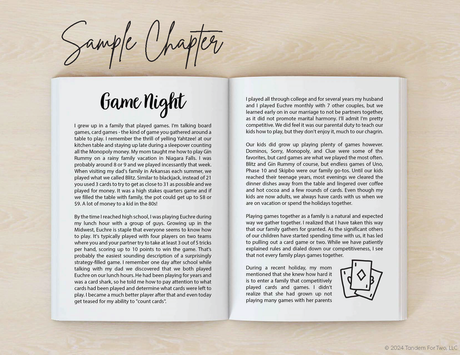 Sample Chapter
Game Night
I grew up in a family that played games. I'm talking board
games, card games - the kind of game you gathered around a
table to play. I remember the thrill of yelling Yahtzee! at our
kitchen table and staying up late during a sleepover counting
all the Monopoly money. My mom taught me how to play Gin
Rummy on a rainy family vacation in Niagara Falls. I was
probably around 8 or 9 and we played incessantly that week.
When visiting my dad's family in Arkansas each summer, we
played what we called Blitz. Similar to blackjack, instead of 21
you used 3 cards to try to get as close to 31 as possible and we
played for money. It was a high stakes quarters game and if
we filled the table with family, the pot could get up to $8 or
$9. A lot of money to a kid in the 80s!
By the time I reached high school, I was playing Euchre during
my lunch hour with a group of guys. Growing up in the
Midwest, Euchre is staple that everyone seems to know how
to play. It's typically played with four players on two teams
where you and your partner try to take at least 3 out of 5 tricks
per hand, scoring up to 10 points to win the game. That's
probably the easiest sounding description of a surprisingly
strategy-filled game. I remember one day after school while
talking with my dad we discovered that we both played
Euchre on our lunch hours. He had been playing for years and
was a card shark, so he told me how to pay attention to what
cards had been played and determine what cards were left to
play. I became a much better player after that and even today
get teased for my ability to "count cards".
I played all through college and for several years my husband
and I played Euchre monthly with 7 other couples, but we
learned early on in our marriage to not be partners together,
as it did not promote marital harmony. I'll admit I'm pretty
competitive. We did feel it was our parental duty to teach our
kids how to play, but they don't enjoy it, much to our chagrin.
Our kids did grow up playing plenty of games however.
Dominos, Sorry, Monopoly, and Clue were some of the
favorites, but card games are what we played the most often.
Blitz and Gin Rummy of course, but endless games of Uno,
Phase 10 and Skipbo were our family go-tos. Until our kids
reached their teenage years, most evenings we cleared the
dinner dishes away from the table and lingered over coffee
and hot cocoa and a few rounds of cards. Even though my
kids are now adults, we always have cards with us when we
are on vacation or spend the holidays together.
Playing games together as a family is a natural and expected
way we gather together. I realized that I have taken this way
that our family gathers for granted. As the significant others
of our children have started spending time with us, it has led
to pulling out a card game or two. While we have patiently
explained rules and dialed down our competitiveness, I see
that not every family plays games together.
During a recent holiday, my mom
mentioned that she knew how hard it
is to enter a family that competitively
played cards and games. I didn't
realize that she had grown up not
playing many games with her parents
© 2024 Tandem For Two, LLC